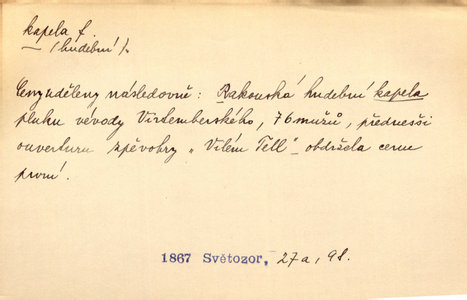 kapela f.
(hudební).
Ceny uděleny následovně: Rakouská hudební kapela
pluku vévody Virtemberského, 76 mužů, přednesši
ouverturu zpěvohry „Vilém Tell“ – obdržela cenu
první.
1867 Světozor, 27a, 98.